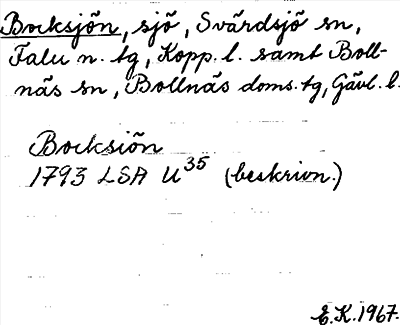 Bocksjön, sjö, Svärdsjö sn,
Falu n. tg, Kopp. l. samt Boll-
näs sn, Bollnäs doms. tg, Gävl. l.
Bocksiön
1793 LSA U35 (beskrivn.)
E.K. 1967.